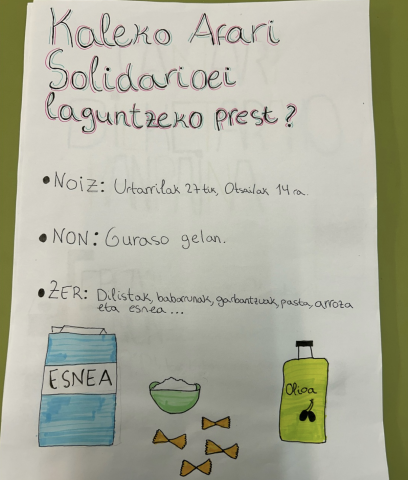 Kaleko Afari
Solidarioei
laguntzeko prest?
• NOIZ: Urtarrilak 27tik, Otsailak 14ra.
• NON: Guraso gelan.
• ZER: Dilistak, babarrunak, garbantzuak, pasta, arroza
eta esnea...
ESNEA
Olioa